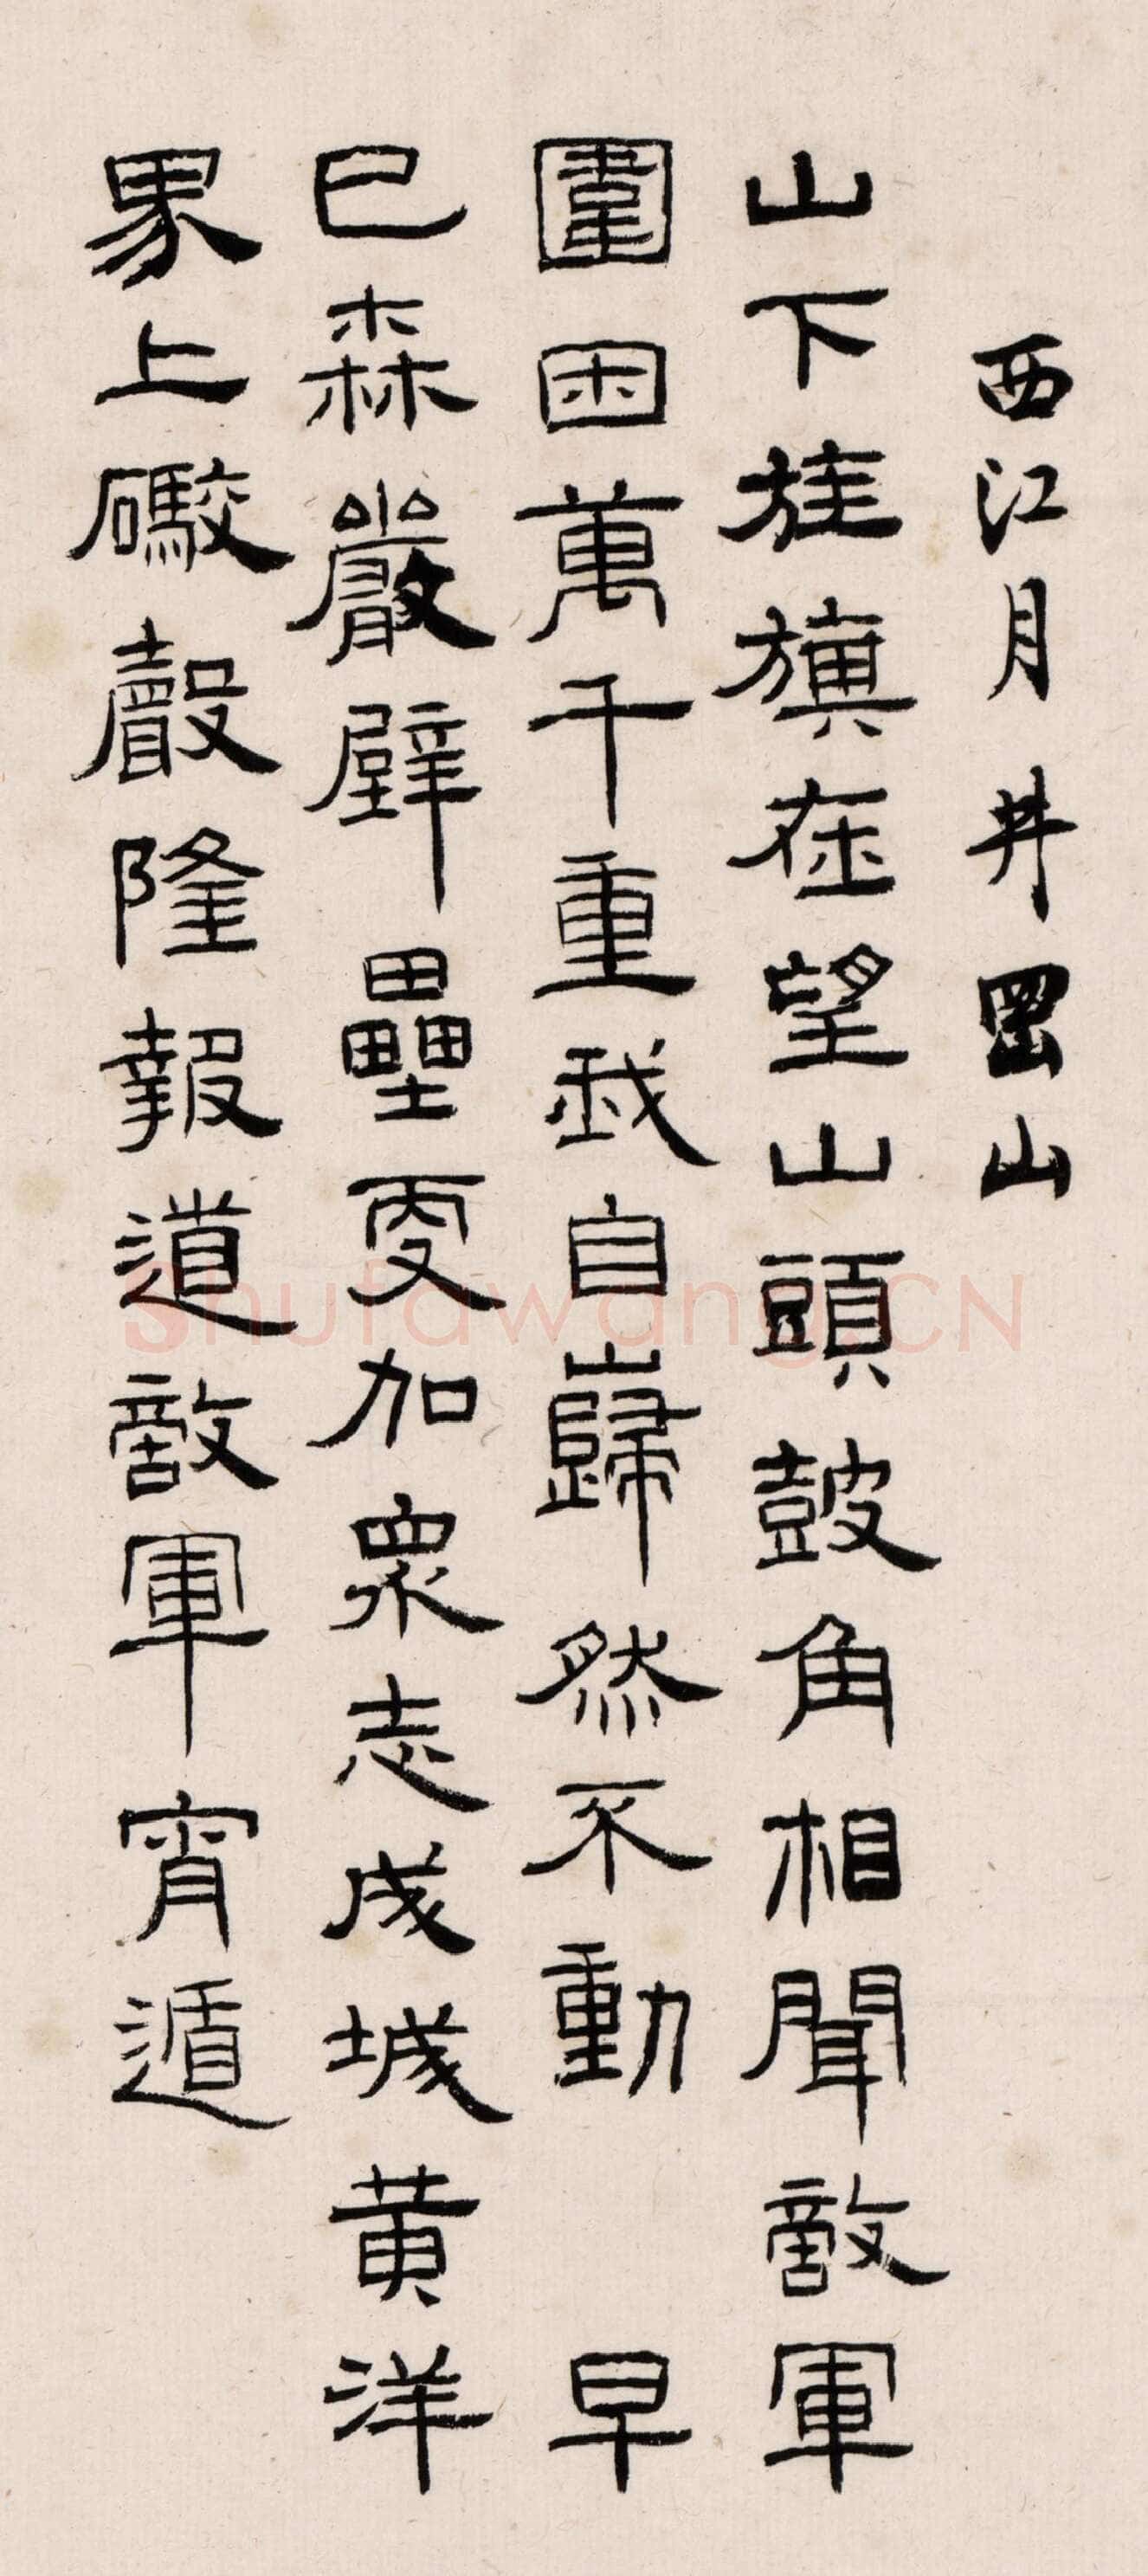 西江月 井岡山
山下旌旗在望山頭鼓角相聞敵軍
圍困萬千重我自巋然不動 早
已森嚴壁壘更加衆志成城黄洋
界上礮聲隆報道敵軍宵遁
Shufawang.CN